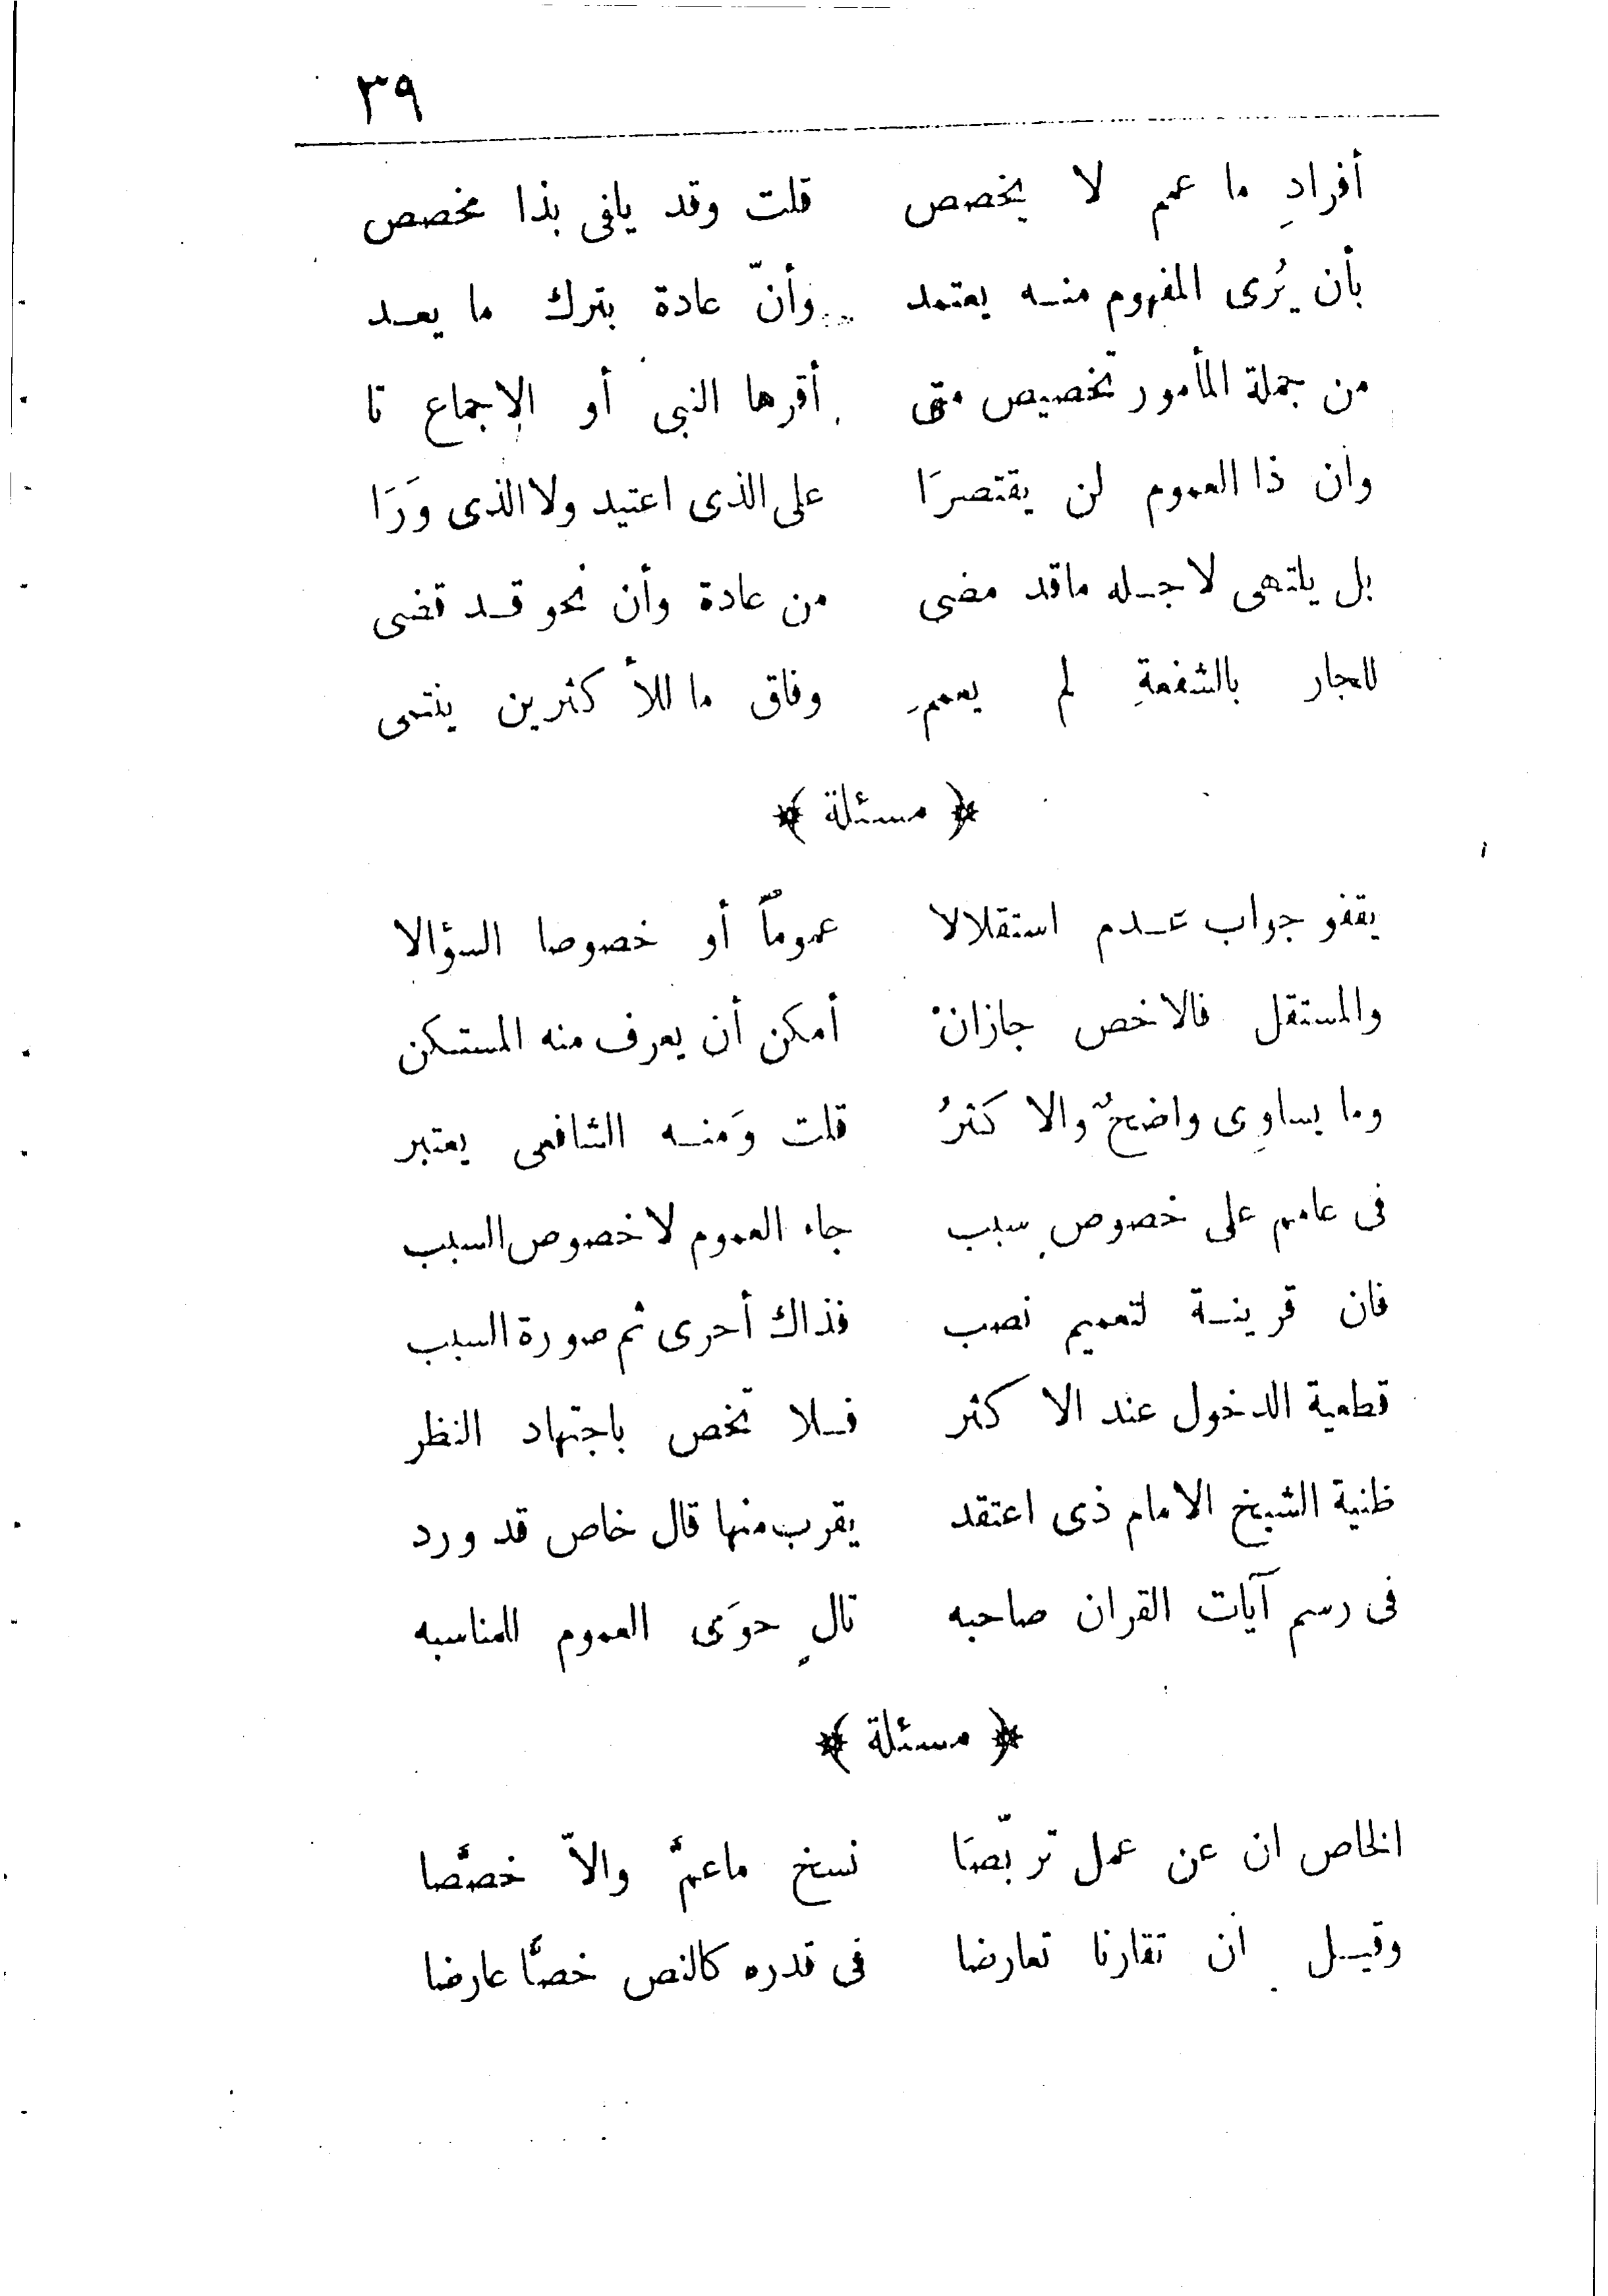 ٣٩
أفرادِ ما عمم لا يخصص قلت وقد يلفى بذا مخصص
بأن يُرى المفهوم منه يعتمد وأنّ عادة بترك ما يعد
من جملة المأمور تخصيص متى أقرها النبى أو الإجماع تا
وان ذا العموم لن يقتصرَا على الذى اعتيد ولا الذى وَرَا
بل يلتهى لاجله ماقد مضى من عادة وأن نحو قد قضى
للجار بالشفعةِ لم يعممِ وفاق ما للأكثرين ينتمى
﴿ مسئلة ﴾
يقفو جواب عدم استقلالا عموماً أو خصوصا السؤالا
والمستقل فالاخص جازان أمكن أن يعرف منه المستكن
وما يساوِى واضحٌ والا كثرُ قلت وَمنه الشافعى يعتبر
فى عامهم على خصوصِ سبب جاء العموم لا خصوص السبب
فان قرينة لتعميم نصب فذاك أحرى ثم صورة السبب
قطعية الدخول عند الا كثر فلا تخص باجتهاد النظر
ظنية الشيخ الامام ذى اعتقد يقرب منها قال خاص قد ورد
فى رسم آيات القران صاحبه تالٍ حوَى العموم للمناسبه
﴿ مسئلة ﴾
الخاص ان عن عمل تربّصَا نسخ ماعمَّ والاّ خصَّصا
وقيل ان تقارنا تعارضا فى قدره كالنص خصَّا عارضا